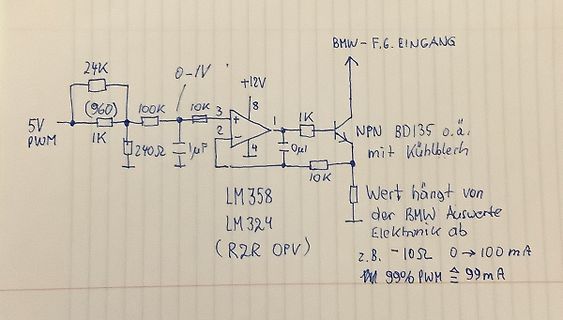 BMW-F.G. EINGANG
24K
0-1V
+12V
(960)
100K
10K
3
8
1
1K
5V
PWM
1K
2
4
240Ω
1µF
0µ1
10K
NPN BD135 o.ä.
mit Kühlblech
LM358
LM324
(R2R OPV)
Wert hängt von
der BMW Auswerte
Elektronik ab
z.B. ~10Ω 0→100mA
99% PWM ≙ 99mA